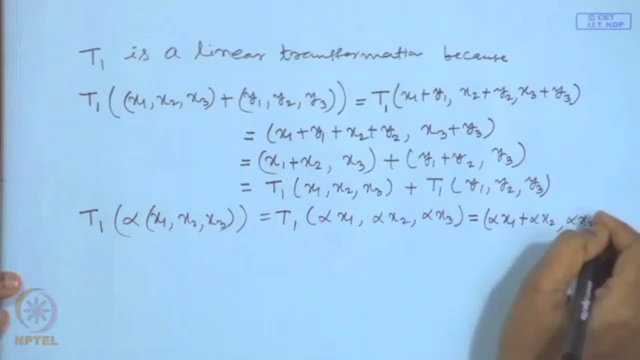 © CET
I.I.T. KGP
T₁ is a linear transformation because
T₁((x₁, x₂, x₃) + (y₁, y₂, y₃)) = T₁(x₁+y₁, x₂+y₂, x₃+y₃)
= (x₁+y₁+x₂+y₂, x₃+y₃)
= (x₁+x₂, x₃) + (y₁+y₂, y₃)
= T₁(x₁, x₂, x₃) + T₁(y₁, y₂, y₃)
T₁(α(x₁, x₂, x₃)) = T₁(αx₁, αx₂, αx₃) = (αx₁+αx₂, αx₃
NPTEL